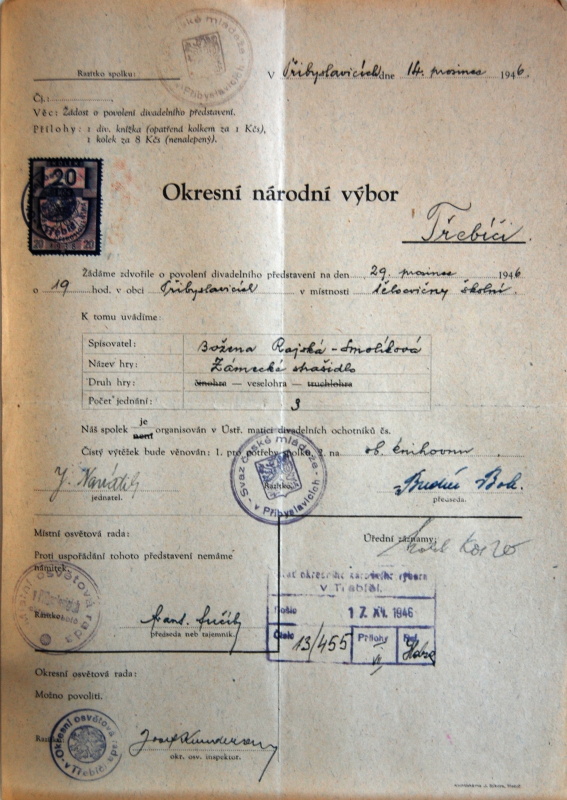 Razítko spolku:
V Přibyslavicích dne 14. prosince 1946
Čj.:
Věc: Žádost o povolení divadelního představení.
Přílohy: 1 div. knížka (opatřená kolkem za 1 Kčs),
1 kolek za 8 Kčs (nenalepený).
20
20 20
Okresní národní výbor
Třebíči.
Žádáme zdvořile o povolení divadelního představení na den 29. prosince 1946
o 19 hod. v obci Přibyslavicích v místnosti tělocvičny školní.
K tomu uvádíme:
Spisovatel: Božena Rajská-Smolíková
Název hry: Zámecké strašidlo
Druh hry: činohra — veselohra — truchlohra
Počet jednání: 3
je
Náš spolek není organisován v Ústř. matici divadelních ochotníků čs.
Čistý výtěžek bude věnován: 1. pro potřeby spolku, 2. na ob. knihovnu
Svaz české mládeže - v Přibyslavicích
jednatel.
předseda.
Místní osvětová rada:
Úřední záznamy:
Proti uspořádání tohoto představení nemáme
námitek.
Místní osvětová rada
Razítko
předseda neb tajemník.
v Třebíči.
Došlo 17. XII. 1946
Číslo 13/455 Přílohy
Okresní osvětová rada:
Možno povoliti.
Okresní osvětová rada v Třebíči
okr. osv. inspektor.